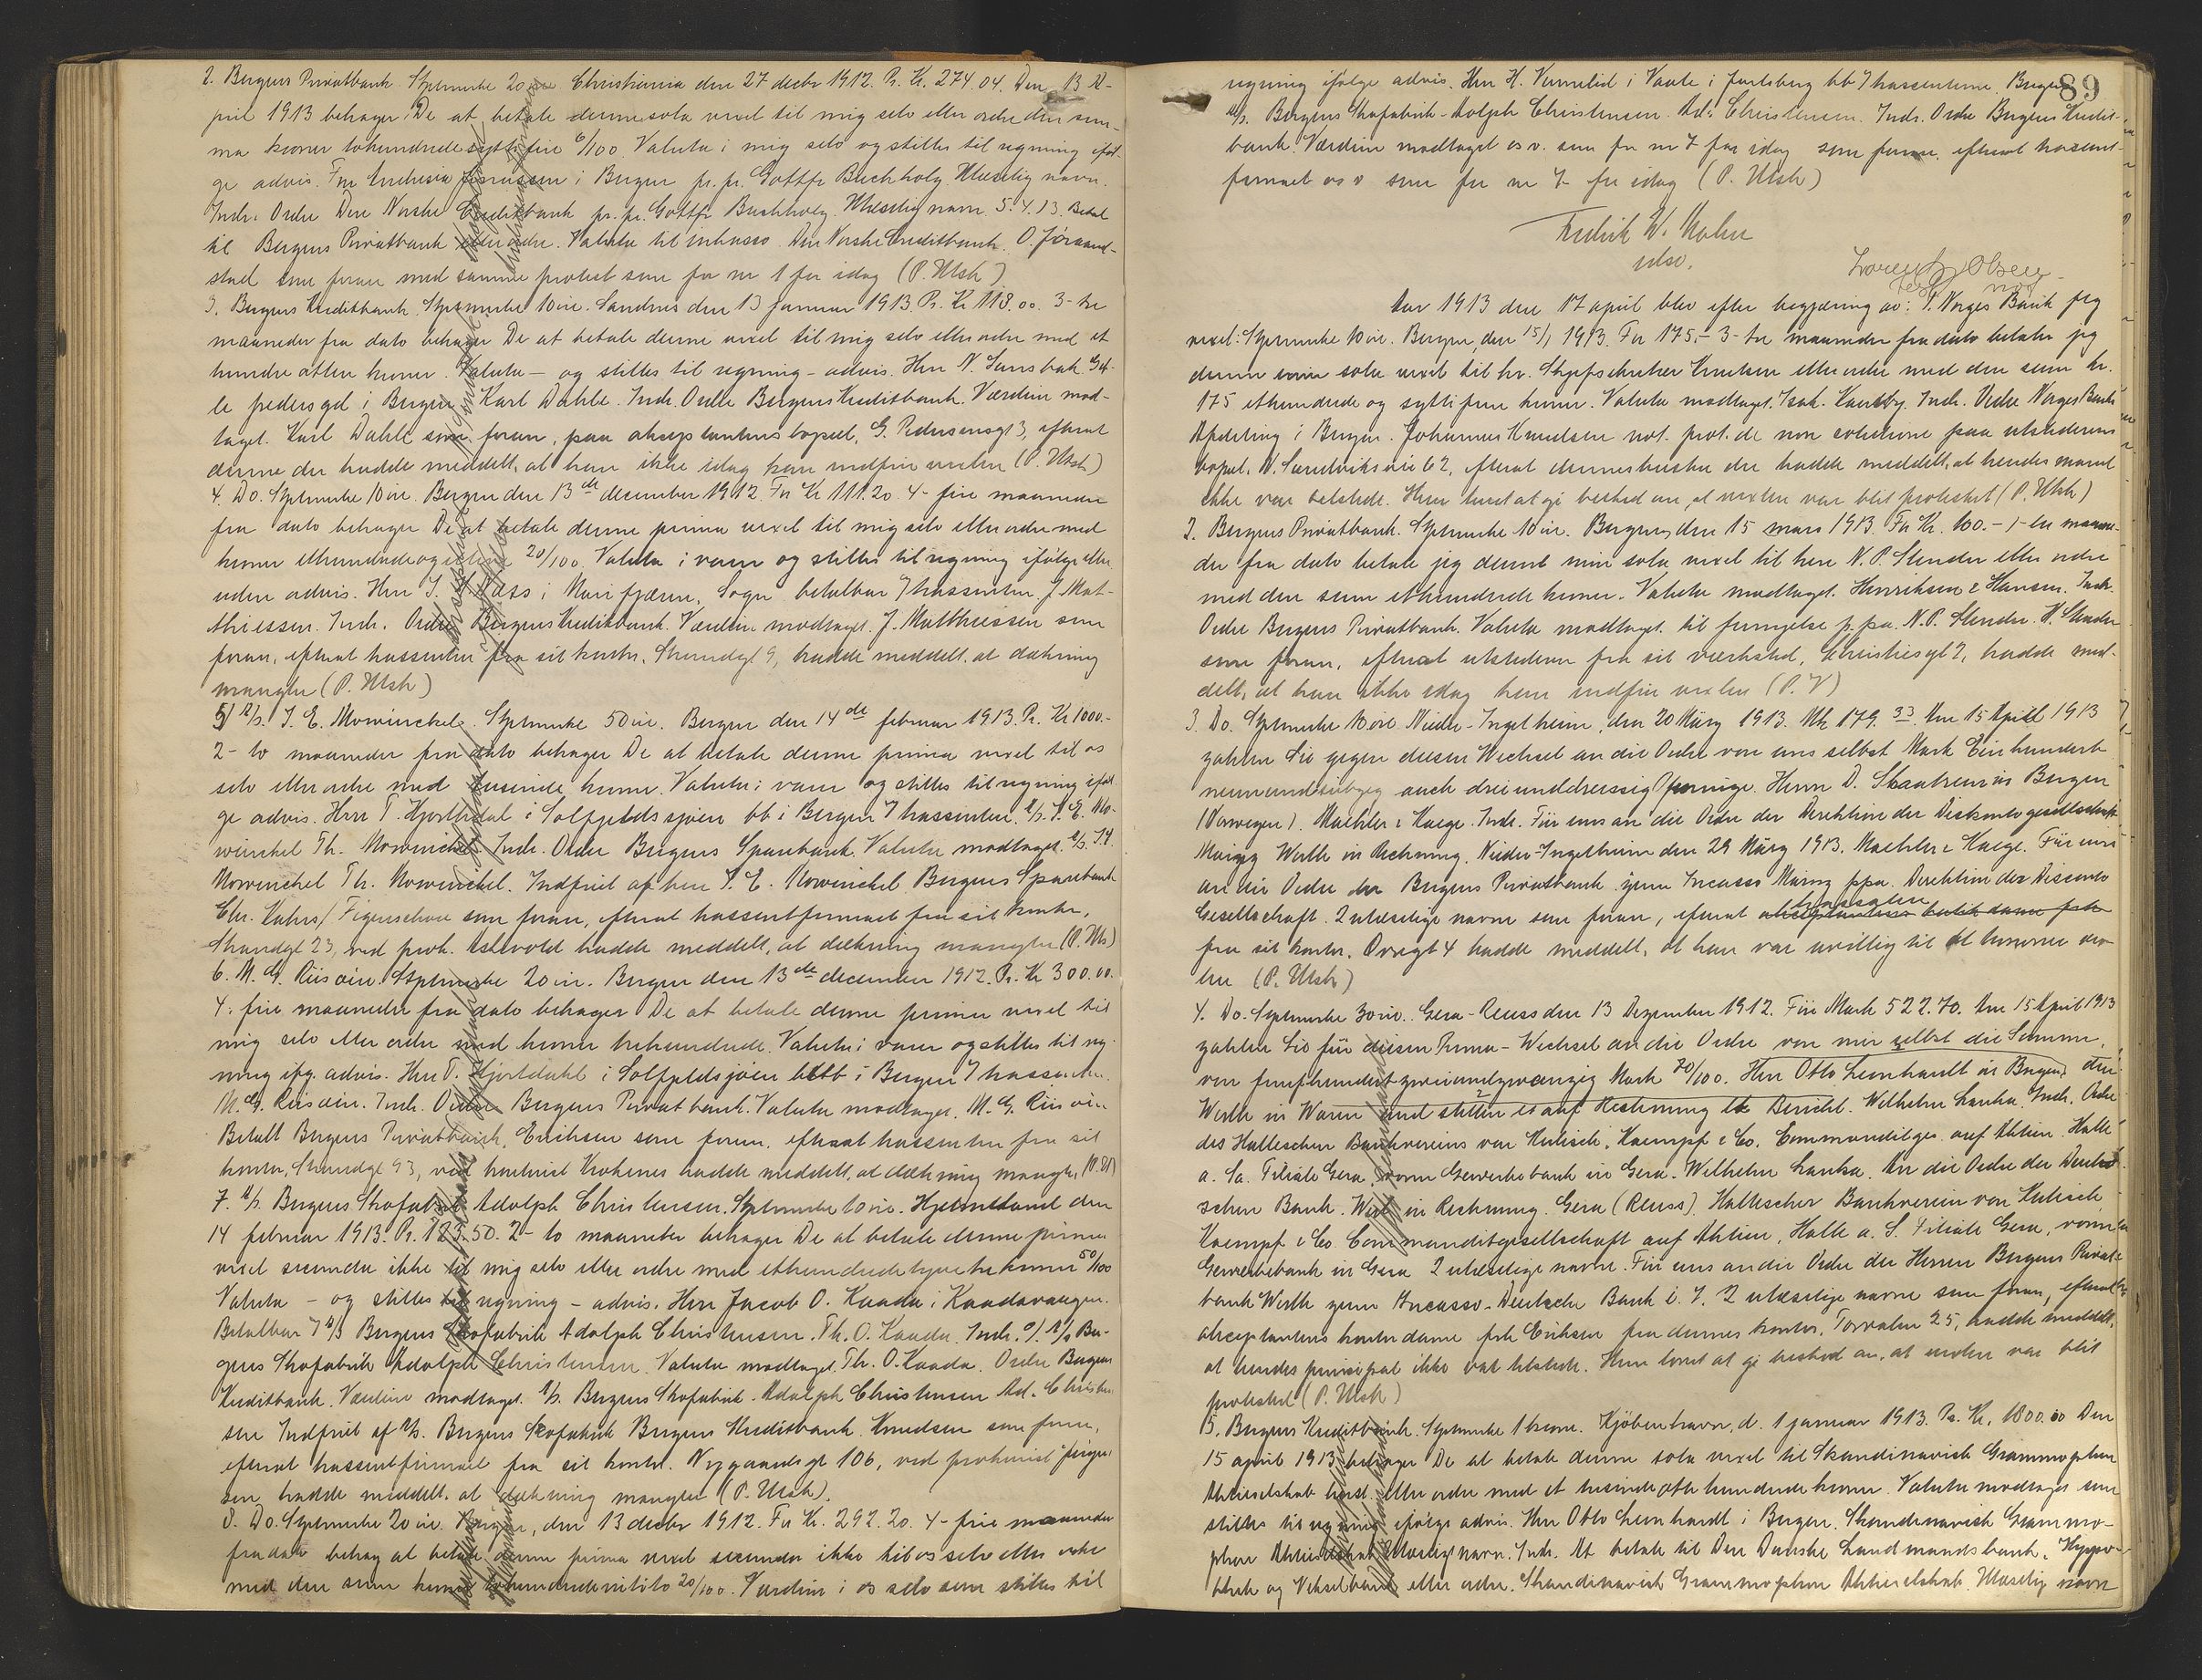 2. Bergens Privatbank Stpmerke 20 øre Christiania den 27 decbr 1912. Pr. Kr. 274.04. Den 13 A-
pril 1913 behager De at betale denne sola vexel til mig selv eller ordre den sum-
ma kroner tohundredesyttifire 4/100. Valuta i mig selv og stilles til regning iføl-
ge advis. i Bergen pr. pr. Gottfr Buchholz. Ulæselig navn.
Indr. Ordre Den Norske Creditbank pr. pr. Gottfr Buchholz. Ulæselig navn. 5.4.13. Betal
til Bergens Privatbank eller ordre. Valuta til inkasso. Den Norske Creditbank. O.
stad som foran med samme protest som for nr 1 for idag (P. Utsk)
3. Bergens Kreditbank. Stpmerke 10 øre. Sandnes den 13 januar 1913. Pr. Kr 118.00. 3- tre
maaneder fra dato behager De at betale denne vexel til mig selv eller ordre med et
hundre atten kroner. Valuta - og stilles til regning - advis. Hrr N.
le pedersgd i Bergen Karl Dahle. Indr. Ordre Bergens Kreditbank. Værdien mod-
taget. Karl Dahle som foran, paa akseptantens bopæl, G. Pedersensgt 3, efterat
denne der hadde meddelt, at han ikke idag kan indfri vexlen (P. Utsk)
4. Do. Stpmerke 10 øre. Bergen den 13de december 1912. For Kr 111.20. 4- fire maaneder
fra dato behager De at betale denne prima vexel til mig selv eller ordre med
kroner ethundredeogelleve 20/100. Valuta i varer og stilles til regning ifølge eller
uden advis. Hrr J. Næss i Marifjæren, Sogn betalbar Thassenten. J. Mat-
thiessen. Indr. Ordre Bergens Kreditbank. Værdien modtaget. J. Matthiessen som
foran, efterat trassenten fra sit kontor, Strandgt 9, hadde meddelt, at dækning
mangler (P. Utsk)
5) A/S. J. E. Mowinckel. Stpmerke 50 øre. Bergen den 14de februar 1913. Pr. Kr 1000.-
2- to maaneder fra dato behager De at betale denne prima vexel til os
selv eller ordre med tusinde kroner. Valuta i varer og stilles til regning iføl-
ge advis. Hrr T. Hjortdal i Solfjeldssjøen bb i Bergen Thassenten. A/S. J. E. Mo-
winckel Th. Mowinckel. Indr. Ordre Bergens Sparebank. Valuta modtaget. A/S. J. E.
Mowinckel Th. Mowinckel. Indfriet af herr J. E. Mowinckel Bergens Sparebank
Chr. Kahrs/ Figenschou som foran, efterat trassentfirmaet fra sit kontor,
Strandgt 23, ved prok. hadde meddelt, at dækning mangler (P. Uts)
6. M. G. Riisøen. Stpmerke 20 øre. Bergen den 13de december 1912. Pr. Kr 300.00.
4. fire maaneder fra dato behager De at betale denne prima vexel til
mig selv eller ordre med kroner trehundrede. Valuta i varer og stilles til reg-
ning ifg. advis. Hrr T. Hjortdahl i Solfjeldsjøen bb i Bergen Thassenten.
M. G. Riisøen. Indr. Ordre Bergens Privatbank. Valuta modtaget. M. G. Riisøen
Betalt Bergens Privatbank, Erichsen som foran, efterat trassenten fra sit
kontor, Strandgt 93, ved kontorist Krohnes hadde meddelt, at dækning mangler (P. Ut)
7. A/S. Bergens Skofabrik Adolph Christensen. Stpmerke 10 øre. Hjelmeland den
14 februar 1913. Pr. 123.50. 2- to maaneder behager De at betale denne prima
vexel secunda ikke til mig selv eller ordre med ethundredetyvetre kroner 50/100
Valuta - og stilles til regning - advis. Hrr Jacob O. Kaada i Kaadavaagen.
Betalbar T A/S Bergens Skofabrik Adolph Christensen. Th. O. Kaada. Indr. O/ A/S Ber-
gens Skofabrik Adolph Christensen. Valuta modtaget. Th. O. Kaada. Ordre Bergens
Kreditbank. Værdien modtaget. A/S. Bergens Skofabrik. Adolph Christensen Ad. Christen-
sen Indfriet af A/S. Bergens Skofabrik Bergens Kreditbank. Knudsen som foran,
efterat trassentfirmaet fra sit kontor. Nygaardsgt 106, ved prokurist Jørgen-
sen hadde meddelt, at dækning mangler (P. Utsk).
8. Do. Stpmerke 20 øre. Bergen, den 13 decbr 1912. For Kr. 292.20. 4- fire maaneder
fra dato behag at betale denne prima vexel secunda ikke til os selv eller ordre
med den sum kroner tohundrednittito 20/100. Værdien i os selv som stilles til
89
regning ifølge advis. Hrr H. Vermelid i Vaale i Jarlsberg bb Thassenterne. Bergens
A/S. Bergens Skofabrik - Adolph Christensen. Ad. Christensen. Indr. Ordre Bergens Kredit-
bank. Værdien modtaget osv. som for nr 7 for idag som foran, efterat trassent-
firmaet osv som for nr 7 for idag (P. Utsk)
Fredrik W.
edsv.
Lorentz Olsen
Aar 1913 den 17 april blev efter begjæring av: 1. Norges Bank flg
vexel: Stpmerke 10 øre. Bergen, den 15/1 1913. For 175.- 3- tre maaneder fra dato betaler jeg
denne min sola vexel til hr. Knutsen eller ordre med den sum kr.
175 ethundrede og syttifem kroner. Valuta modtaget. Isak. Indr. Ordre Norges Banks
Afdeling i Bergen. Johannes Knudsen not. prot. de non solutione paa utstederens
bopæl, N. Sandviksvei 62, efterat dennes hustru der hadde meddelt, at hendes mand
ikke var tilstede. Hun lovet at gi besked om, at vexlen var blit protestert (P. Utsk)
2. Bergens Privatbank. Stpmerke 10 øre. Bergen, den 15 mars 1913. For Kr. 100.- 1- en maane-
der fra dato betale jeg denne min sola vexel til herr N. P. Stender eller ordre
med den sum ethundrede kroner. Valuta modtaget. Henriksen & Hansen. Indr.
Ordre Bergens Privatbank. Valuta modtaget til fornyelse p. pa. N. P. Stender. H. Stender
som foran, efterat utstederen fra sit værksted, Christiesgt 7, hadde med-
delt, at han ikke idag kan indfri vexlen (P. V)
3. Do. Stpmerke 10 øre Nieder-Ingelheim, den 20 März 1913. Mk 179.33. Am 15 April 1913
zahlen Sie gegen diesen Wechsel an die Ordre von uns selbst Mark Einhundert
neunundsiebzig auch dreiunddreissig Pfennige. Herrn D. Skaatrein in Bergen
(Norwegen). Maehler & Kaege. Indr. Für uns an die Ordre der Direktion der Diskontogesellschaft
Mainz Werth in Rechnung. Nieder-Ingelheim den 29 März 1913. Maehler & Kaege. Für uns
an die Ordre der Bergens Privatbank zum Incasso Mainz ppa. Direktion der Disconto
trassaten
Gesellschaft. 2 ulæselige navne som foran, efterat akceptantens butikdame frk
fra sit kontor, Torvgt 4 hadde meddelt, at han var uvillig til at honorere vex-
len (P. Utsk)
4. Do. Stpmerke 30 øre. Gera-Reuss den 13 Dezember 1912. Für Mark 522.70. Am 15 April 1913
zahlen Sie für diesen Prima-Wechsel an die Ordre von mir selbst die Summe,
von fünfhundertzweiundzwanzig Mark 70/100. Herr Otto Leonhardt in Bergen den
Werth in Waren und stellen es auf Rechnung lt Bericht. Wilhelm Lanka. Indr. Ordre
des Halleschen Bankvereins von Kulisch, Kaempf & Co. Commanditges. auf Aktien. Halle
a. Sa. Filiale Gera, vorm Gewerbebank in Gera. Wilhelm Lanka. An die Ordre der Deut-
schen Bank. Wert in Rechnung. Gera (Reuss). Hallescher Bankverein von Kulisch,
Kaempf & Co. Commanditgesellschaft auf Aktien, Halle a. S. Filiale Gera, vorm
Gewerbebank in Gera 2 ulæselige navne. Für uns an die Ordre der Herren Bergens Privat-
bank Werth zum Incasso. Deutsche Bank i. V. 2 ulæselige navne som foran, efterat
akceptantens kontordame frk Erichsen fra dennes kontor, Torvalm 25, hadde meddelt,
at hendes principal ikke var tilstede. Hun lovet at gi besked om, at vexlen var blit
protestert (P. Utsk)
5. Bergens Kreditbank. Stpmerke 1 krone. Kjøbenhavn, d. 1 januar 1913. Pr. Kr. 1800.00 Den
15 april 1913 behager De at betale denne sola vexel til Skandinavisk Grammophon
Aktieselskab eller ordre med et tusinde otte hundrede kroner. Valuta modtaget som
stilles til regning ifølge advis. Hrr Otto Leonhardt i Bergen. Skandinavisk Grammo-
phon Aktieselskab Ulæseligt navn. Indr. At betale til Den Danske Landmandsbank, Hypo-
thek og Vekselbank eller ordre. Skandinavisk Grammophon Aktieselskab. Ulæselig navn